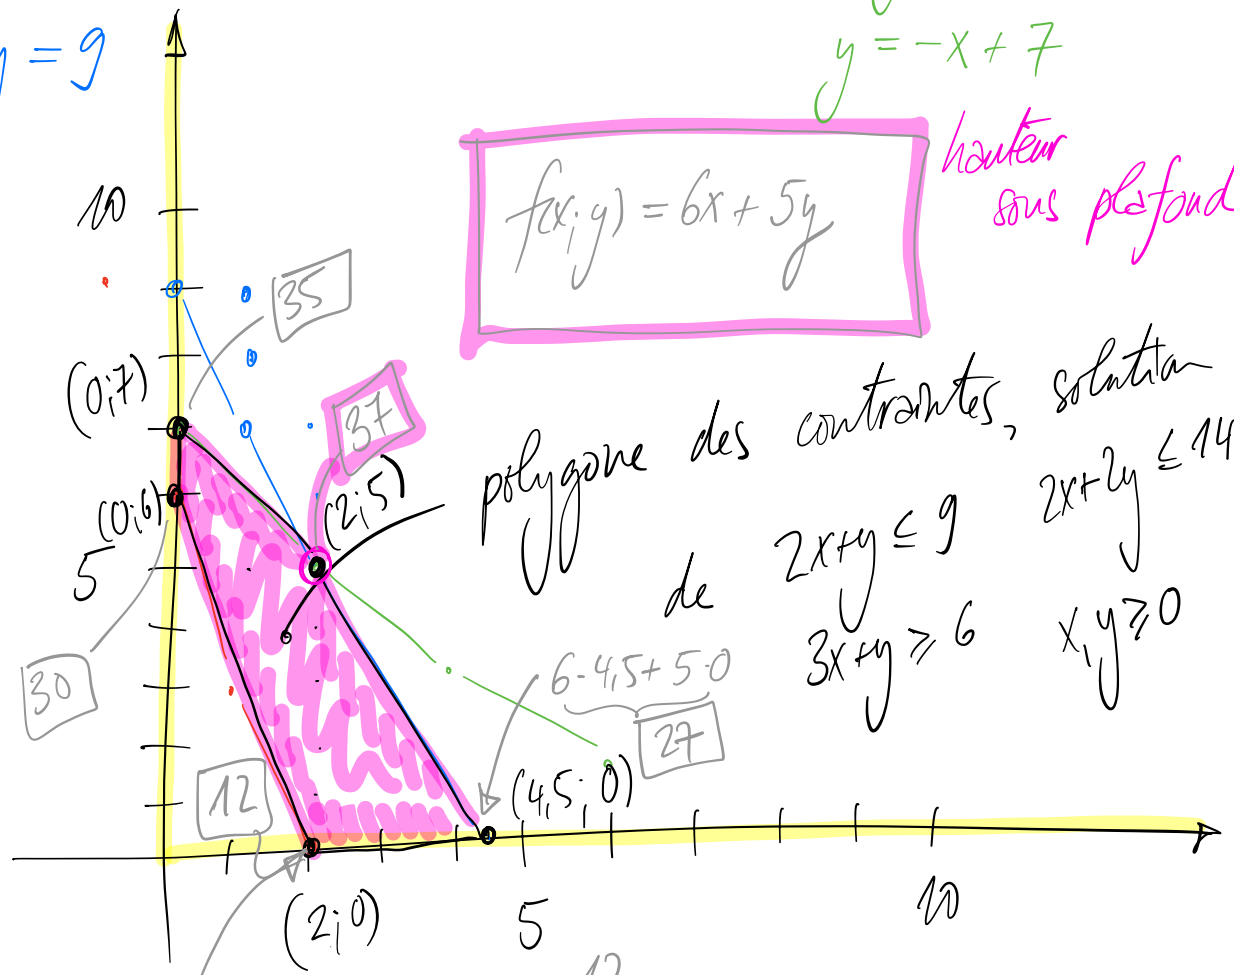 y = 9
y = -x + 7
hauteur
sous plafond
f(x;y) = 6x + 5y
10
35
(0;7)
37
(2;5)
(0;6)
5
polygone des contraintes, solution
de 2x+y ≤ 9 2x+2y ≤ 14
3x+y ⩾ 6 x,y ⩾ 0
30
6·4,5 + 5·0
27
12
(4,5 ; 0)
(2;0)
5
10
12